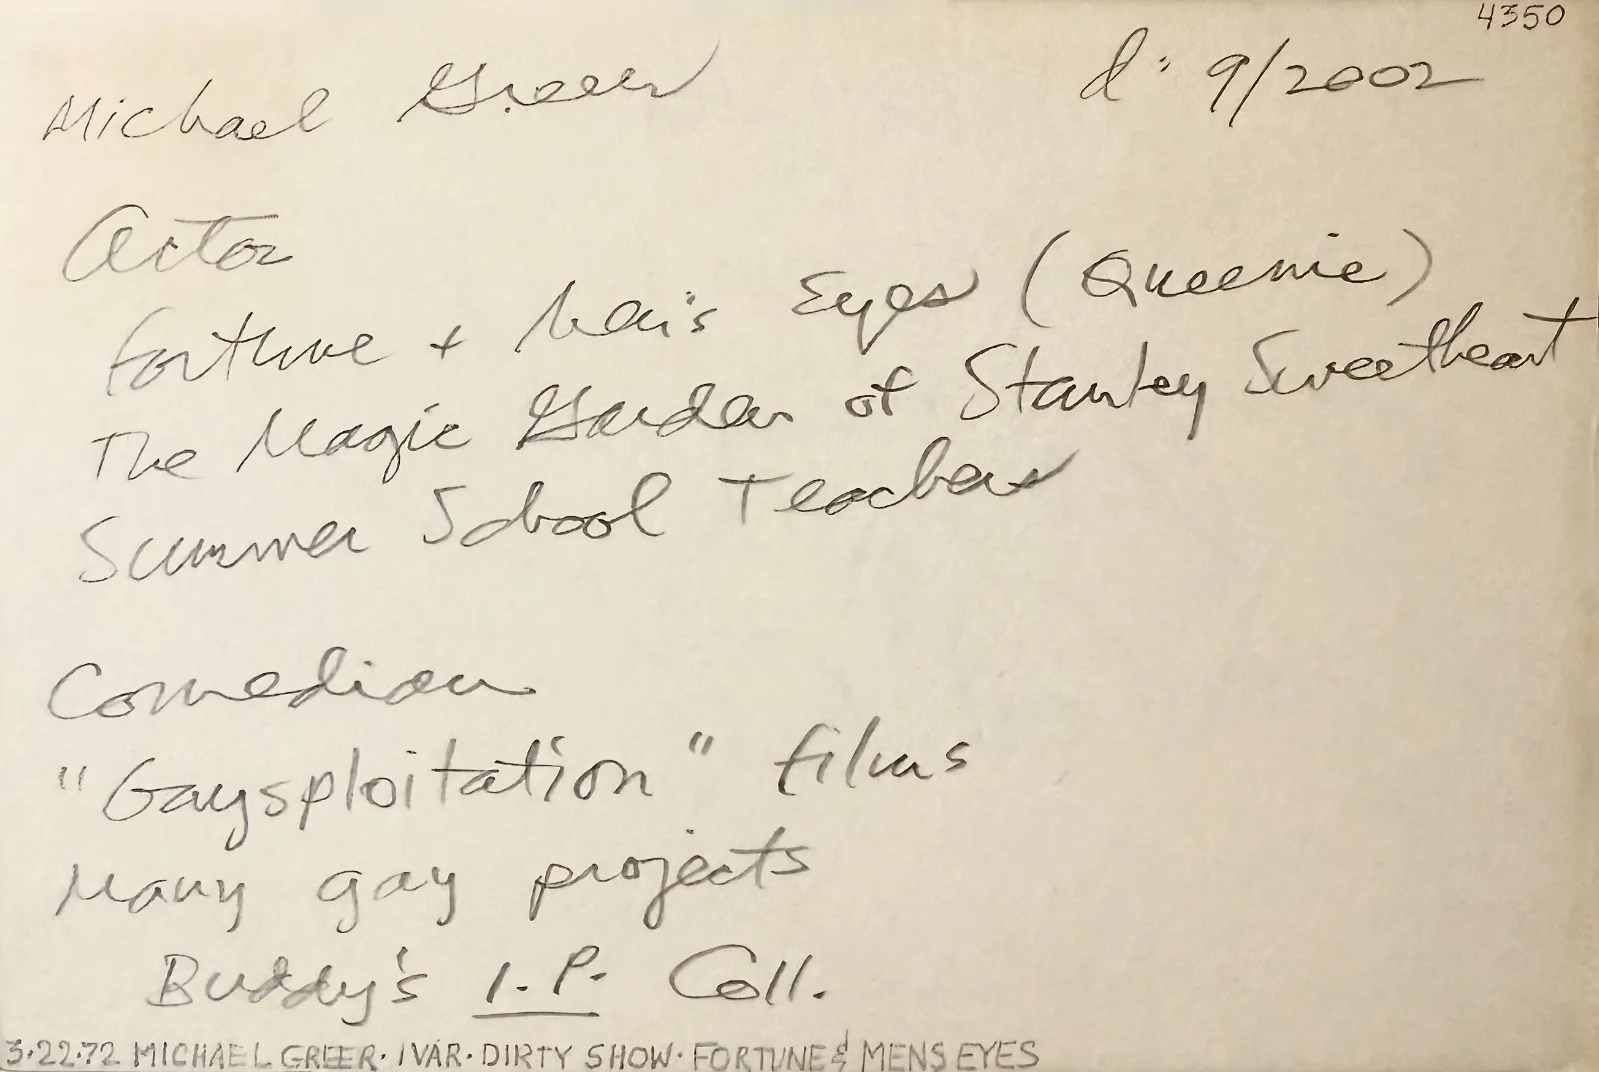 4350
Michael Greer d: 9/2002
Actor
Fortune + Men's Eyes (Queenie)
The Magic Garden of Stanley Sweetheart
Summer School Teachers
Comedian
"Gaysploitation" films
Many gay projects
Buddy's I.P. Coll.
3·22·72 MICHAEL GREER· IVAR· DIRTY SHOW· FORTUNE & MENS EYES